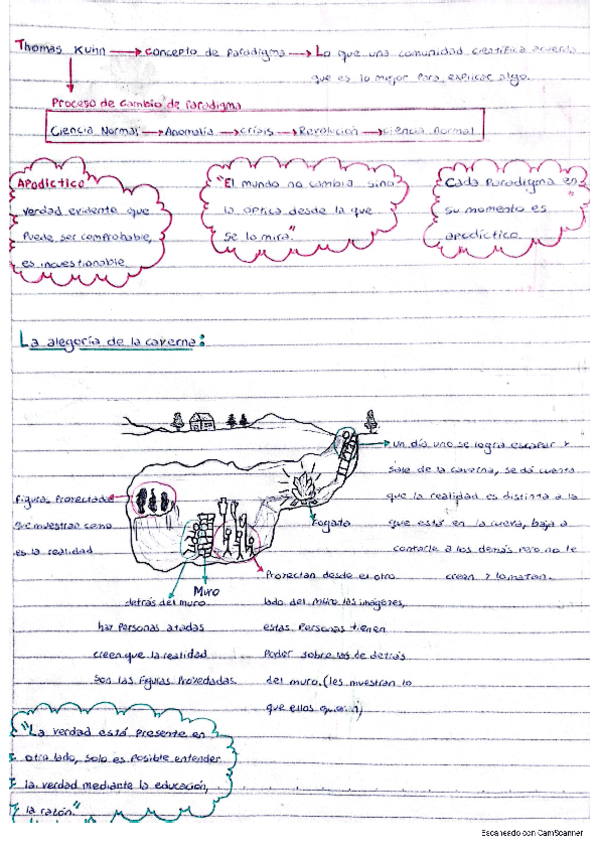 Thomas Kuhn → concepto de Paradigma → Lo que una comunidad científica acuerda
que es lo mejor para explicar algo.
Proceso de cambio de Paradigma
Ciencia Normal → Anomalía → crisis → Revolución → ciencia normal
Apodíctico
verdad evidente que
Puede ser comprobable,
es incuestionable
"El mundo no cambia sino
la optica desde la que
se lo mira"
Cada Paradigma en
su momento es
apodíctico.
La alegoría de la caverna:
un día uno se logra escapar y
sale de la caverna, se dá cuenta
que la realidad es distinta a la
que está en la cueva, baja a
contarle a los demás pero no le
creen y lo matan.
Figuras Proyectadas
que muestran como
es la realidad
Fogata
Muro
detrás del muro
hay Personas atadas
creen que la realidad
son las figuras Proyectadas.
Proyectan desde el otro
lado del muro las imágenes,
estas Personas tienen
Poder sobre las de detrás
del muro. (les muestran lo
que ellos)
"La verdad está presente en
otro lado, solo es Posible entender
la verdad mediante la educación,
la razón."
Escaneado con CamScanner